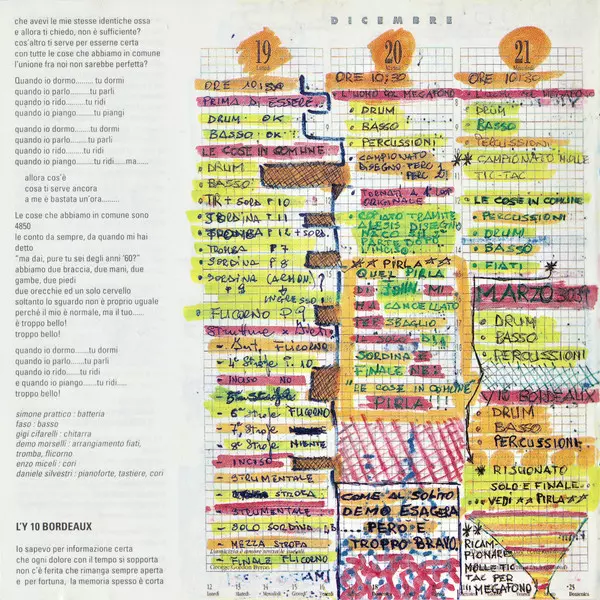 che avevi le mie stesse identiche ossa
e allora ti chiedo, non è sufficiente?
cos'altro ti serve per esserne certa
con tutte le cose che abbiamo in comune
l'unione fra noi non sarebbe perfetta?
Quando io dormo........tu dormi
quando io parlo........tu parli
quando io rido........tu ridi
quando io piango.......tu piangi
quando io dormo.......tu dormi
quando io parlo.......tu parli
quando io rido.......tu ridi
quando io piango.......tu ridi......ma......
allora cos'è
cosa ti serve ancora
a me è bastata un'ora........
Le cose che abbiamo in comune sono
4850
le conto da sempre, da quando mi hai
detto
"ma dai, pure tu sei degli anni '60?"
abbiamo due braccia, due mani, due
gambe, due piedi
due orecchie ed un solo cervello
soltanto lo sguardo non è proprio uguale
perché il mio è normale, ma il tuo.....
è troppo bello!
troppo bello!
quando io dormo.......tu dormi
quando io parlo.......tu parli
quando io rido.......tu ridi
e quando io piango......tu ridi....
troppo bello!
simone prattico : batteria
faso : basso
gigi cifarelli : chitarra
demo morselli : arrangiamento fiati,
tromba, flicorno
enzo miceli : cori
daniele silvestri : pianoforte, tastiere, cori
L'Y 10 BORDEAUX
Io sapevo per informazione certa
che ogni dolore con il tempo si sopporta
non c'è ferita che rimanga sempre aperta
e per fortuna, la memoria spesso è corta
DICEMBRE
19
Lunedì
ORE 10:30
PRIMA DI ESSERE
DRUM: OK
BASSO: OK
LE COSE IN COMUNE
DRUM
BASSO
TR + SORD P 10
SORDINA P 11
TROMBA P 12 + SORD
TROMBA P 7
SORDINA P 8
SORDINA (ARMON.)
P 9
INGRESSO
FLICORNO P 9
FLICORNO
4ª STROFE P. 10
INCISO NO
6ª STROFE FLICORNO
7ª STROFE
8ª STROFE NIENTE
INCISO
STRUMENTALE
STROFA
STRUMENTALE
SOLO SORDINA
MEZZA STROFA
FINALE FLICORNO
George Gordon Byron
20
Martedì
ORE 10:30
L'UOMO COL MEGAFONO
DRUM
BASSO
PERCUSSIONI
CAMPIONATO
DISEGNO PERC 1
PERC 2
TORNATI A
ORIGINALE
COPIATO TRAMITE
ALESIS DISEGNO
PARTE DOPO
** PIRLA **
QUEL PIRLA
DI JOHN MI
HA CANCELLATO
PER SBAGLIO
IL SOLO DI
SORDINA E
FINALE NB
"LE COSE IN COMUNE"
PIRLA!
COME AL SOLITO
DEMO ESAGERA
PERO' E'
TROPPO BRAVO
21
Mercoledì
ORE 10:30
L'UOMO COL MEGAFONO
DRUM
BASSO
PERCUSSIONI
** CAMPIONATO MOLLE
TIC-TAC
LE COSE IN COMUNE
PERCUSSIONI
DRUM
BASSO
FIATI
MARZO 3039
DRUM
BASSO
PERCUSSIONI
Y10 BORDEAUX
DRUM
BASSO
PERCUSSIONI
* RISUONATO
SOLO E FINALE
VEDI ** PIRLA **
** RICAM-
PIONARE
MOLLE TIC
TAC PER
"MEGAFONO"